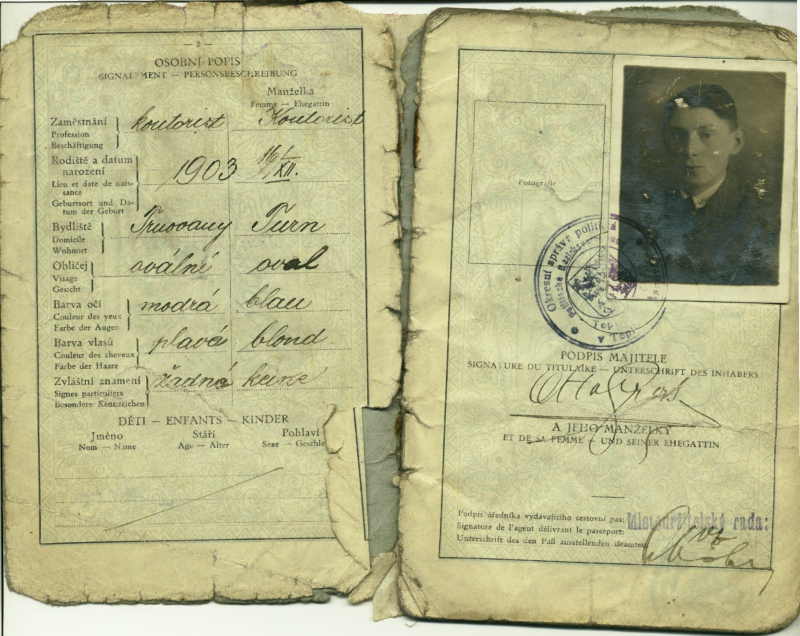 — 2 —
OSOBNÍ POPIS
SIGNALEMENT — PERSONSBESCHREIBUNG
Manželka
Femme — Ehegattin
Zaměstnání
Profession
Beschäftigung
koutorist Koutorist
Rodiště a datum
narození
Lieu et date de nais-
sance
Geburtsort und Da-
tum der Geburt
1903 16/XII.
Bydliště
Domicile
Wohnort
Trnovany Turn
Obličej
Visage
Gesicht
oválné oval
Barva očí
Couleur des yeux
Farbe der Augen
modrá blau
Barva vlasů
Couleur des cheveux
Farbe der Haare
plavá blond
Zvláštní znamení
Signes particuliers
Besondere Kennzeichen
žádná keine
DĚTI — ENFANTS — KINDER
Jméno Stáří Pohlaví
Nom — Name Age — Alter Sexe — Geschle
Fotografie
Okresní správa polit
Politische Bezirks
PODPIS MAJITELE
SIGNATURE DU TITULAIRE — UNTERSCHRIFT DES INHABERS
Otto
A JEHO MANŽELKY
ET DE SA FEMME — UND SEINER EHEGATTIN
Podpis úředníka vydávajícího cestovní pas:
Signature de l'agent délivrant le passeport:
Unterschrift des den Paß ausstellenden Beamten:
Místodržitelský rada: